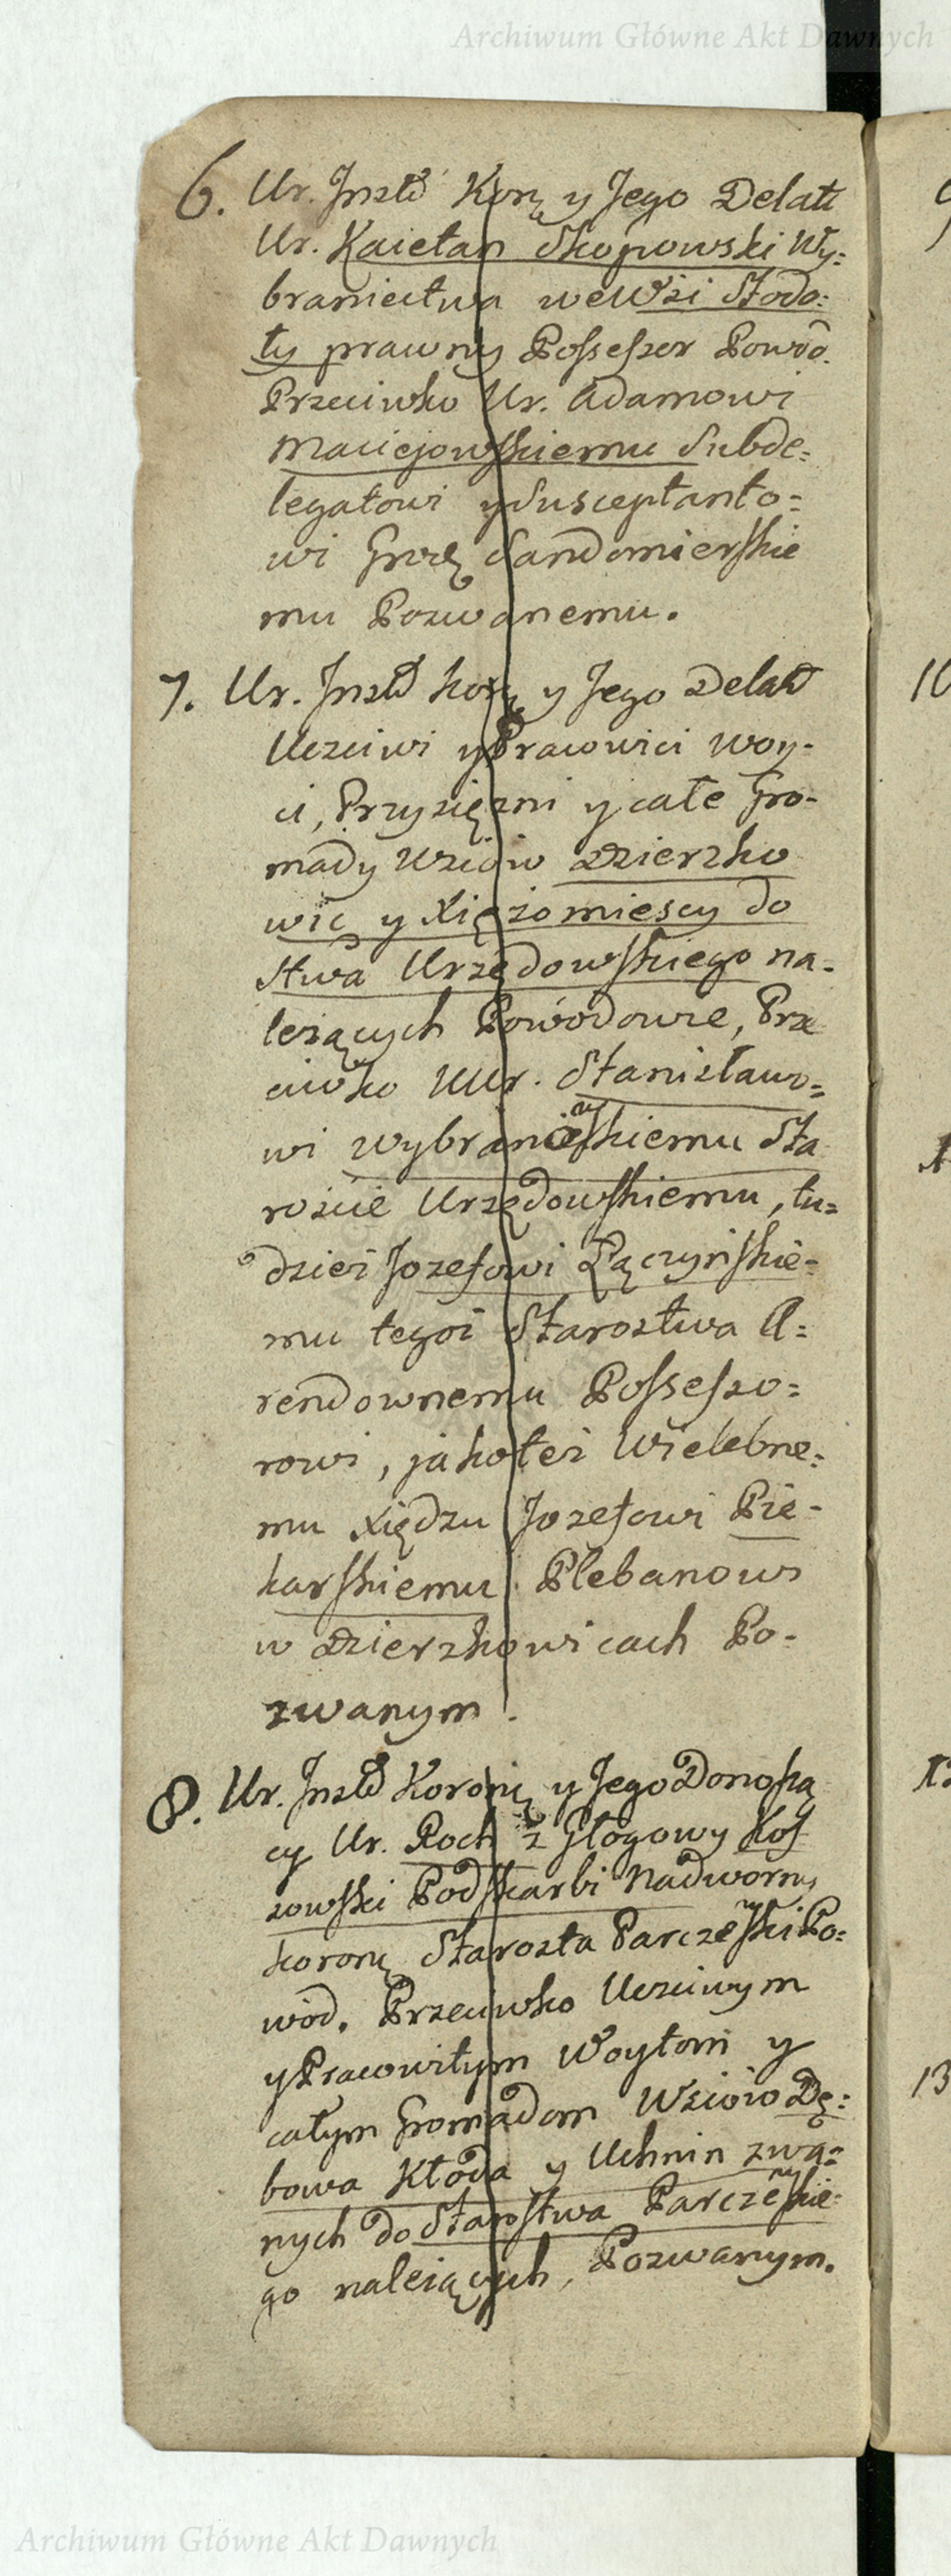 Archiwum Główne Akt Dawnych
6. Ur. Instł Korę y Jego Delatł
Ur. Kaietan Skopowski Wy=
braniectwa we Wsi Stodo=
ły prawny Possessor Powód.
Przeciwko Ur. Adamowi
Maciejowskiemu Subde=
legatowi y Susceptanto=
wi Grdz Sandomierskie
mu Pozwanemu.
7. Ur. Instł Korę y Jego Delatł
Uczciwi y Pracowici Woy-
ci, Przysięzni y całe Gro-
mady Wsiów Dzierzko
wic y Xięzomiescy do
Stwa Urzędowskiego na-
leżących Powodowie, Prze
ciwko UUr. Stanisławo=
wi Wybranieskiemu Sta
roscie Urzędowskiemu, tu=
dzież Jozefowi Łączyńskie=
mu tegoż Starostwa A=
rendownemu Possesso=
rowi, jakoteż Wielebne=
mu Xiędzu Jozefowi Pie-
karskiemu Plebanowi
w Dzierzkowicach Po-
zwanym.
8. Ur. Instł Koronę y Jego Donoszą
cy Ur. Roch z Głogowy Kos
sowski Podskarbi Nadworny
koronę Starosta Parczewski Po=
wód. Przeciwko Uczciwym
y Pracowitym Woytom y
całym Gromadom Wsiow Dę=
bowa Kłoda y Uchnin zwa=
nych do Starostwa Parczewskie-
go należących, Pozwanym.
10
13
Archiwum Główne Akt Dawnych